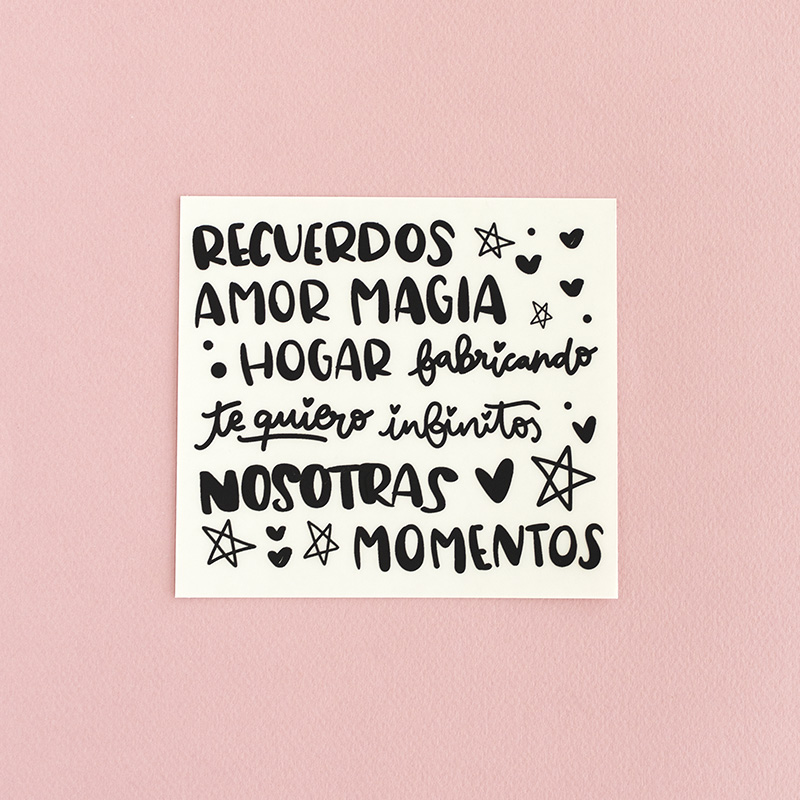 RECUERDOS
AMOR MAGIA
HOGAR fabricando
te quiero infinitos
NOSOTRAS
MOMENTOS